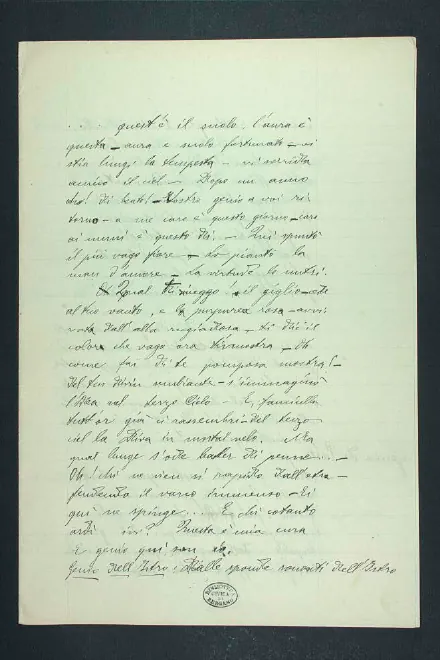 .... quest'è il suolo. l'aura è
questa – aura e suolo fortunato – vi
stia lungi la tempesta – vi sorrida
amico il ciel – Dopo un anno
dei! di beati – Vostro genio a voi ri
torno – a me caro è questo giorno – caro
ai numi è questo dì. – Qui spuntò
il più vago fiore – Lo piantò la
man d'amore – La virtude lo nutrì.
Qual ti veggo! il giglio – cede
al tuo vanto, e la purpurea rosa – avvi
vata dall'alba rugiadosa – di dì il
color che vago ora dimostra – Oh
come fai di te pomposa mostra! –
Del tuo divin sembiante – s'immaginò
l'Idea nel terzo Cielo – E, fanciulla
tutt'or già ci rassembri del terzo
ciel la Diva in mortal velo. Ma
qual lunge s'ode batter di penne ... –
Oh! chi ne vien sì rapido dall'etra –
fendendo il varco immenso –
qui ne spinge ... E chi cotanto
ardì Questa è mia cura
e genio qui son io.
Genio dell'Istro: Dalle sponde sonanti dell'Istro
BIBLIOTECA
CIVICA
BERGAMO